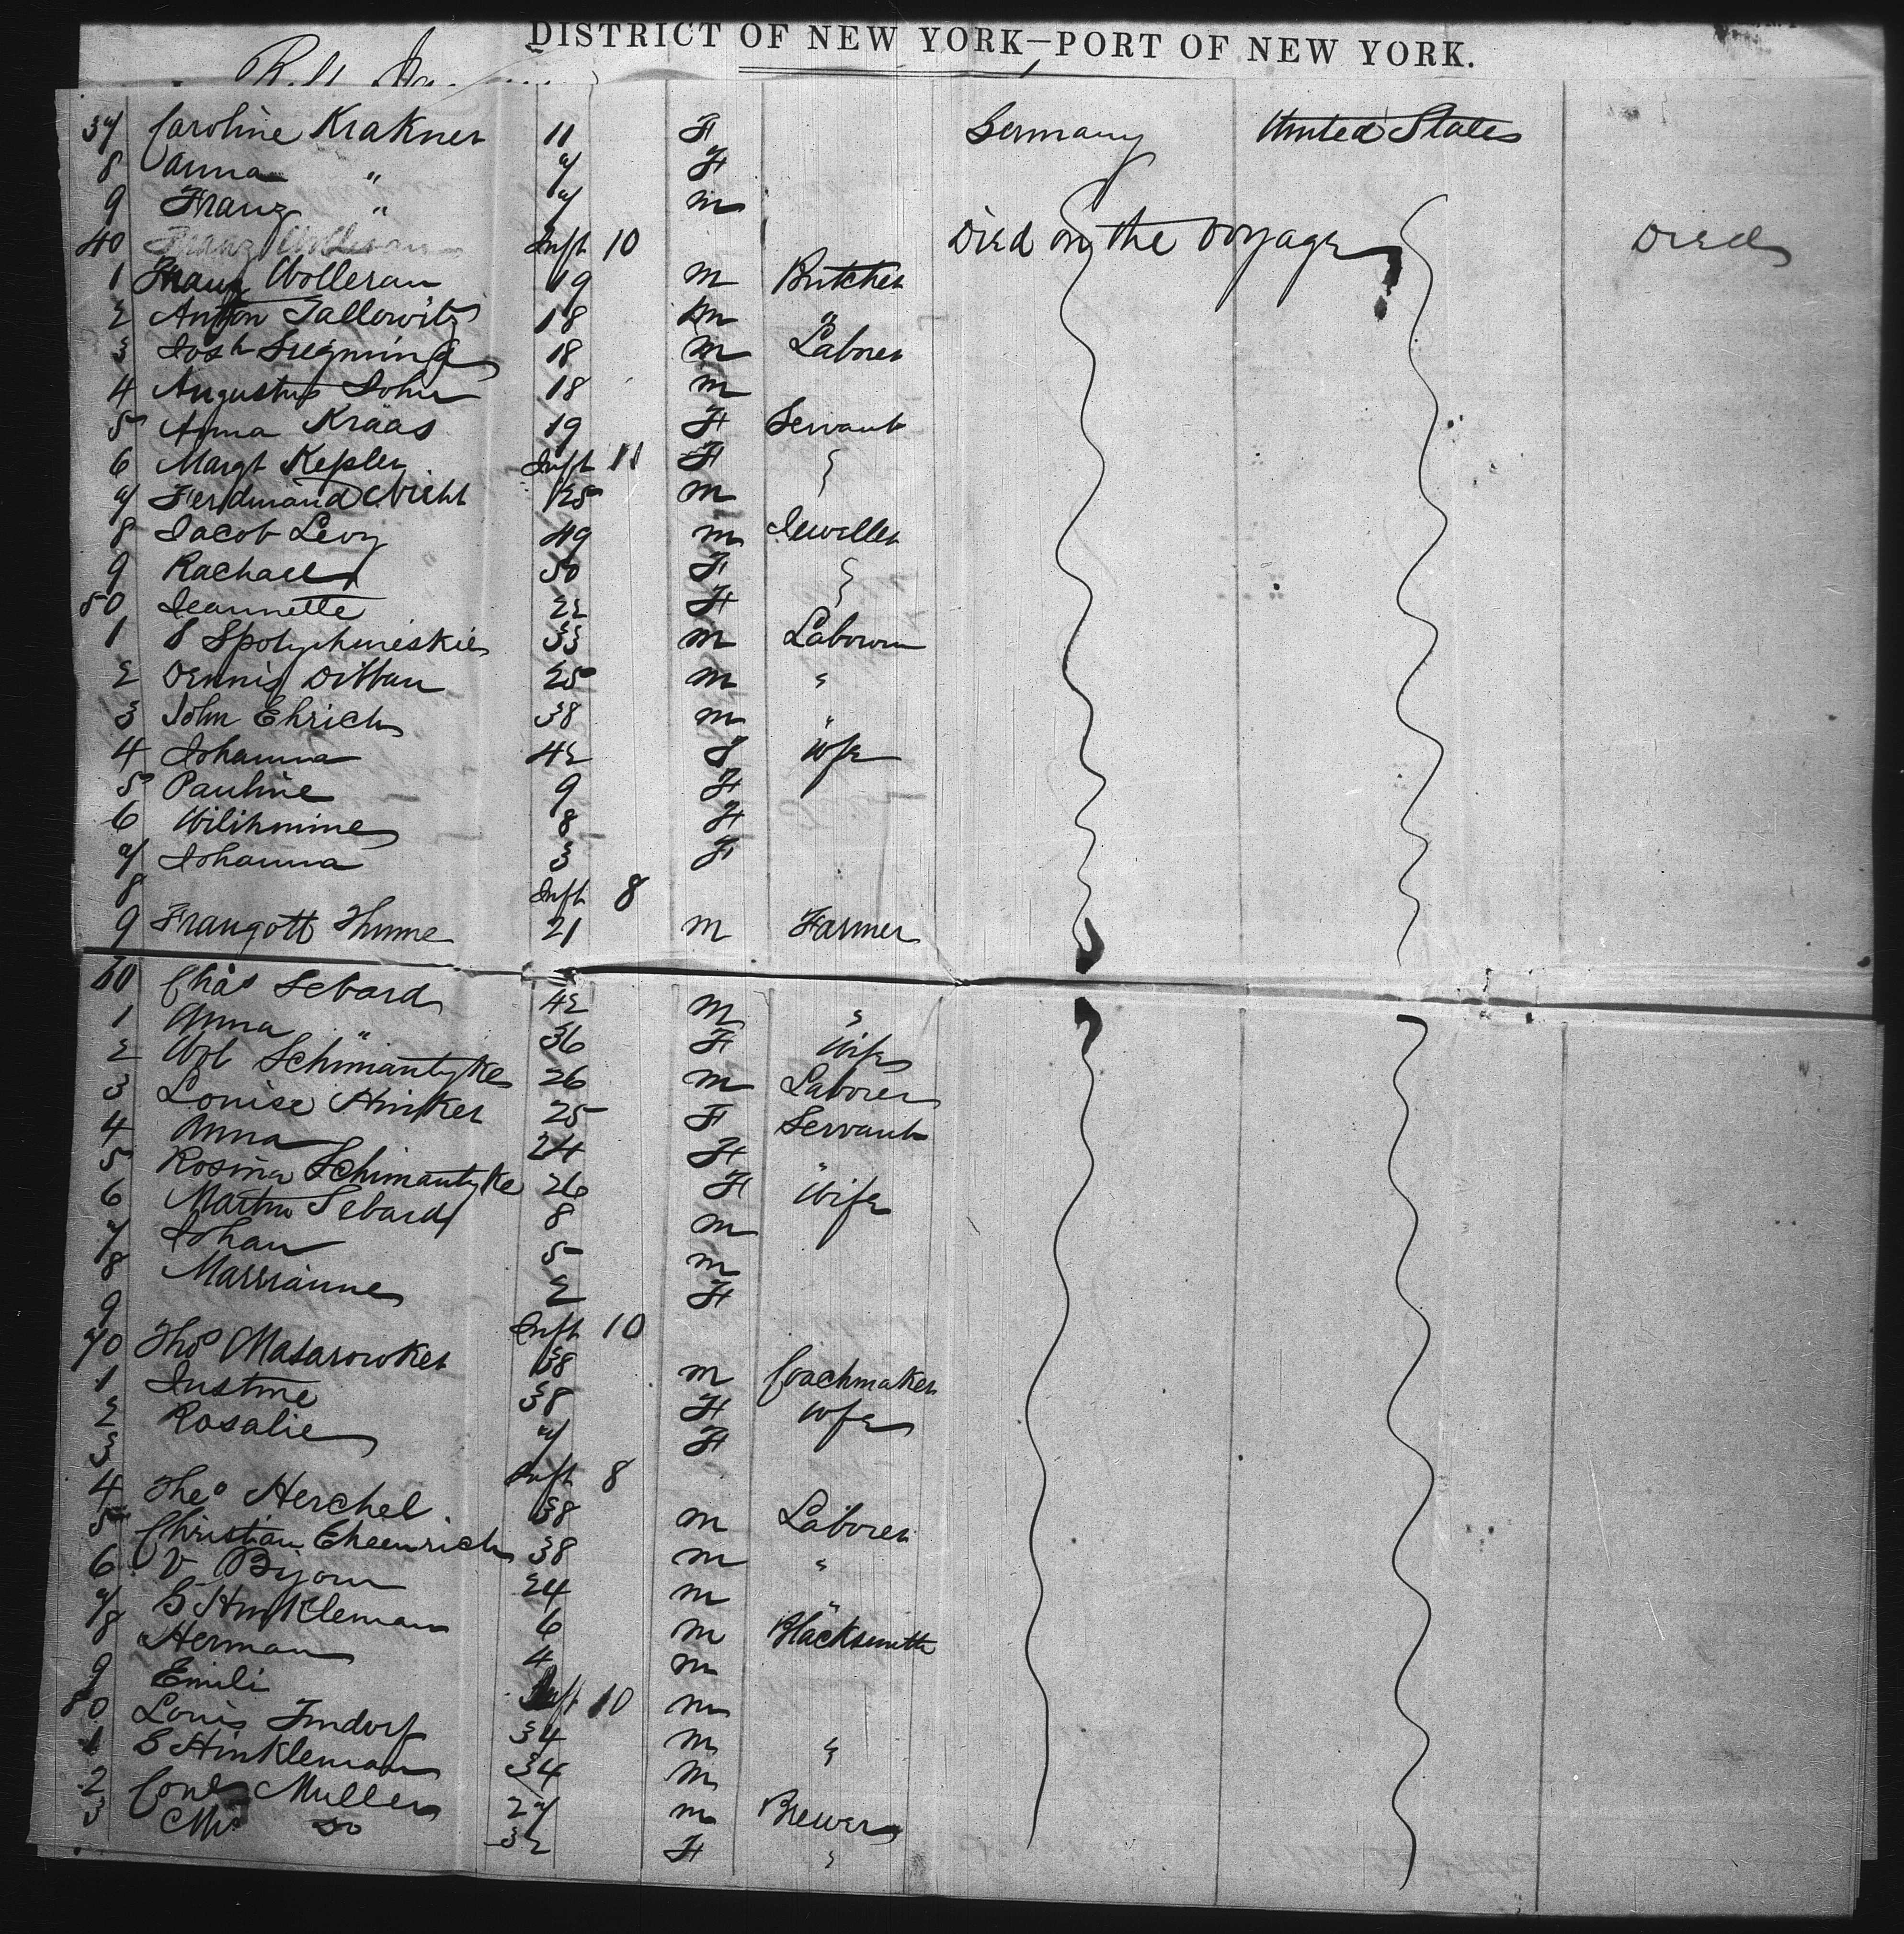 DISTRICT OF NEW YORK—PORT OF NEW YORK.
37 Caroline Krakner 11 F Germany United States
8 Anna " 7 F
9 Franz " 7 m
40 Inft 10 Died on the voyage Died
1 Franz Wolleran 19 m Butcher
2 Anton Tallowitz 18 m "
3 Josh 18 m Labner
4 Augustus John 18 m
5 Anna Kraas 19 F Servant
6 Margt Kepler Inft 11 F
7 Ferdinand 25 m
8 Jacob Levy 49 m Jeweller
9 Rachael 50 F
50 Jeannette 22 F
1 S 33 m Laborer
2 Dennis Dittan 25 m "
3 John Ehrich 38 m "
4 Johanna 42 F Wfe
5 Pauline 9 F
6 Wilihmine 8 F
7 Johanna 3 F
8 Inft 8
9 Fraugott Thume 21 m Farmer
60 Chas Sebard 42 m "
1 Anna " 36 F Wife
2 Schimantyke 26 m Laborer
3 Louise Hinker 25 F Servant
4 Anna 24 F "
5 Rosina Schimantyke 26 F Wife
6 Martin Sebard 8 m
7 Johan 5 m
8 Marrianne 2 F
9 Inft 10
70 Thos Masarowker 38 m Coachmaker
1 Justine 38 F Wfe
2 Rosalie 7 F
3 Inft 8
4 Theo Herchel 38 m Laborer
5 Christian Eheenrich 38 m "
6 V Bijour 24 m "
7 G Hinkleman 6 m Blacksmith
8 Herman 4 m
9 Emili Inft 10 m
80 Louis Imdorf 34 m "
1 G Hinkleman 34 m
2 Muller 27 m Brewer
3 Mrs Do 32 F "